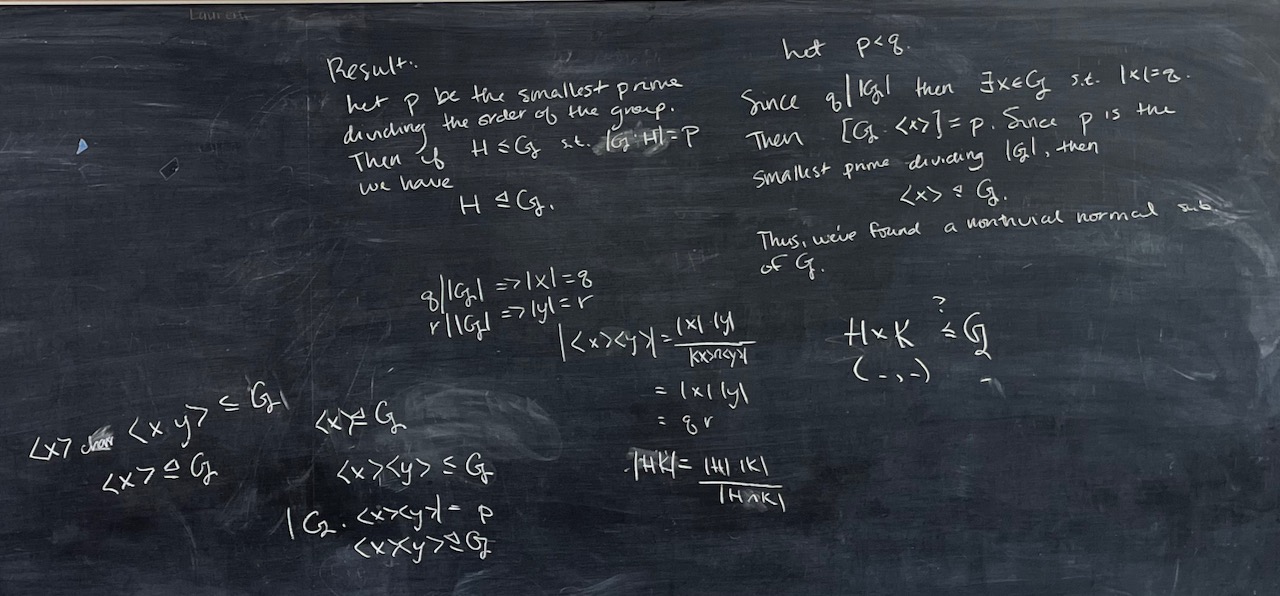 Lauren
Result:
Let p be the smallest prime
dividing the order of the group.
Then if H ≤ G s.t. |G:H|=p
we have
H ⊴ G.
Let p<q.
Since q||G| then ∃x∈G s.t. |x|=q.
Then [G:<x>]=p. Since p is the
smallest prime dividing |G|, then
<x> ⊴ G.
Thus, we've found a nontrivial normal sub.
of G.
q||G| => |x|=q
r||G| => |y|=r
|<x><y>| = |x| |y| / |<x>∩<y>|
= |x| |y|
= q r
|HK| = |H| |K| / |H∩K|
?
H×K ≤ G
(-,-) -
<x> char <x y> ≤ G
<x> ⊴ G
<x> ⊴ G
<x><y> ≤ G
|G: <x><y>| = p
<x><y> ⊴ G